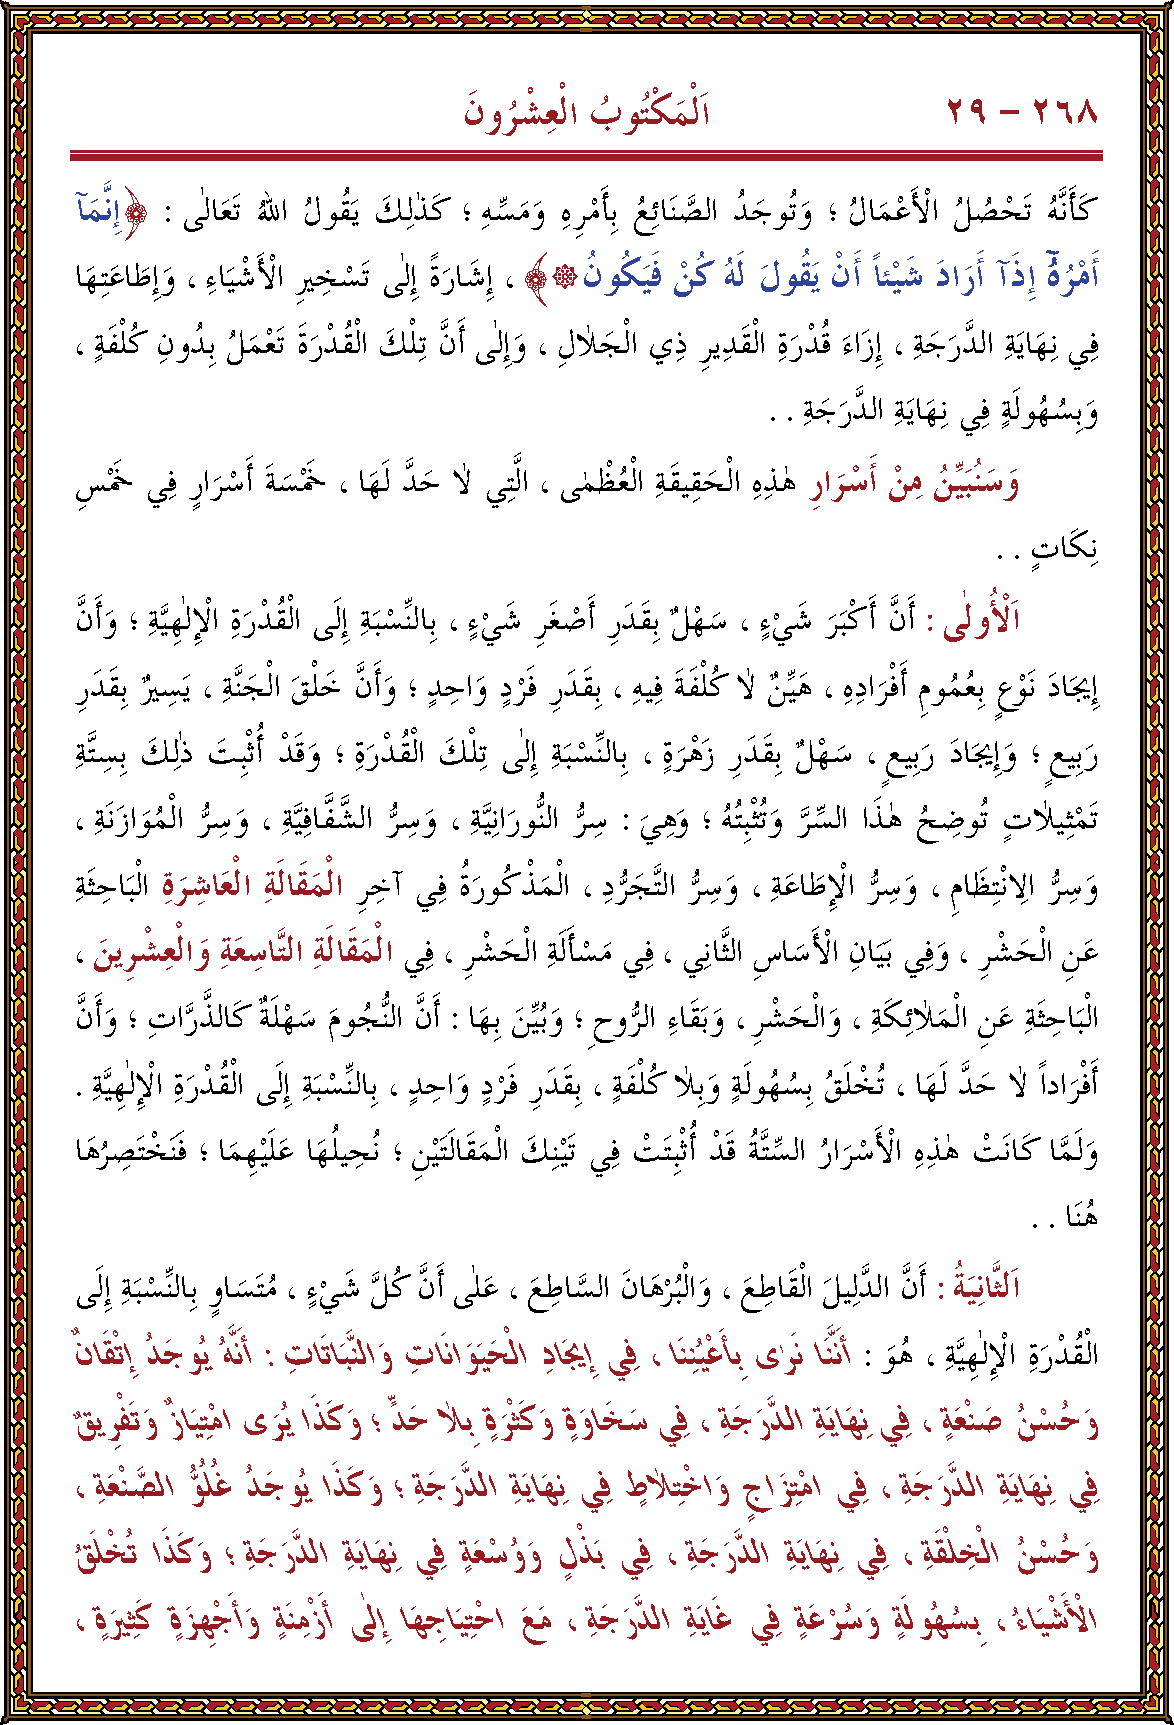 ٢٦٨ – ٢٩ اَلْمَكْتُوبُ الْعِشْرُونَ
كَأَنَّهُ تَحْصُلُ الْأَعْمَالُ ؛ وَتُوجَدُ الصَّنَائِعُ بِأَمْرِهِ وَمَسِّهِ ؛ كَذٰلِكَ يَقُولُ اللهُ تَعَالٰى : ﴿إِنَّمَآ
أَمْرُهُٓ إِذَآ أَرَادَ شَيْئاً أَنْ يَقُولَ لَهُ كُنْ فَيَكُونُ۞﴾ ، إِشَارَةً إِلٰى تَسْخِيرِ الْأَشْيَاءِ ، وَإِطَاعَتِهَا
فِي نِهَايَةِ الدَّرَجَةِ ، إِزَاءَ قُدْرَةِ الْقَدِيرِ ذِي الْجَلاٰلِ ، وَإِلٰى أَنَّ تِلْكَ الْقُدْرَةَ تَعْمَلُ بِدُونِ كُلْفَةٍ ،
وَبِسُهُولَةٍ فِي نِهَايَةِ الدَّرَجَةِ . .
وَسَنُبَيِّنُ مِنْ أَسْرَارِ هٰذِهِ الْحَقِيقَةِ الْعُظْمٰى ، الَّتِي لاٰ حَدَّ لَهَا ، خَمْسَةَ أَسْرَارٍ فِي خَمْسِ
نِكَاتٍ . .
اَلْأُولٰى : أَنَّ أَكْبَرَ شَيْءٍ ، سَهْلٌ بِقَدَرِ أَصْغَرِ شَيْءٍ ، بِالنِّسْبَةِ إِلَى الْقُدْرَةِ الْإِلٰهِيَّةِ ؛ وَأَنَّ
إِيجَادَ نَوْعٍ بِعُمُومِ أَفْرَادِهِ ، هَيِّنٌ لاٰ كُلْفَةَ فِيهِ ، بِقَدَرِ فَرْدٍ وَاحِدٍ ؛ وَأَنَّ خَلْقَ الْجَنَّةِ ، يَسِيرٌ بِقَدَرِ
رَبِيعٍ ؛ وَإِيجَادَ رَبِيعٍ ، سَهْلٌ بِقَدَرِ زَهْرَةٍ ، بِالنِّسْبَةِ إِلٰى تِلْكَ الْقُدْرَةِ ؛ وَقَدْ أُثْبِتَ ذٰلِكَ بِسِتَّةِ
تَمْثِيلاٰتٍ تُوضِحُ هٰذَا السِّرَّ وَتُثْبِتُهُ ؛ وَهِيَ : سِرُّ النُّورَانِيَّةِ ، وَسِرُّ الشَّفَّافِيَّةِ ، وَسِرُّ الْمُوَازَنَةِ ،
وَسِرُّ الِانْتِظَامِ ، وَسِرُّ الْإِطَاعَةِ ، وَسِرُّ التَّجَرُّدِ ، الْمَذْكُورَةُ فِي آخِرِ الْمَقَالَةِ الْعَاشِرَةِ الْبَاحِثَةِ
عَنِ الْحَشْرِ ، وَفِي بَيَانِ الْأَسَاسِ الثَّانِي ، فِي مَسْأَلَةِ الْحَشْرِ ، فِي الْمَقَالَةِ التَّاسِعَةِ وَالْعِشْرِينَ ،
الْبَاحِثَةِ عَنِ الْمَلاٰئِكَةِ ، وَالْحَشْرِ ، وَبَقَاءِ الرُّوحِ ؛ وَبُيِّنَ بِهَا : أَنَّ النُّجُومَ سَهْلَةٌ كَالذَّرَّاتِ ؛ وَأَنَّ
أَفْرَاداً لاٰ حَدَّ لَهَا ، تُخْلَقُ بِسُهُولَةٍ وَبِلاٰ كُلْفَةٍ ، بِقَدَرِ فَرْدٍ وَاحِدٍ ، بِالنِّسْبَةِ إِلَى الْقُدْرَةِ الْإِلٰهِيَّةِ .
وَلَمَّا كَانَتْ هٰذِهِ الْأَسْرَارُ السِّتَّةُ قَدْ أُثْبِتَتْ فِي تَيْنِكَ الْمَقَالَتَيْنِ ؛ نُحِيلُهَا عَلَيْهِمَا ؛ فَنَخْتَصِرُهَا
هُنَا . .
اَلثَّانِيَةُ : أَنَّ الدَّلِيلَ الْقَاطِعَ ، وَالْبُرْهَانَ السَّاطِعَ ، عَلٰى أَنَّ كُلَّ شَيْءٍ ، مُتَسَاوٍ بِالنِّسْبَةِ إِلَى
الْقُدْرَةِ الْإِلٰهِيَّةِ ، هُوَ : أَنَّنَا نَرٰى بِأَعْيُنِنَا ، فِي إِيجَادِ الْحَيَوَانَاتِ وَالنَّبَاتَاتِ : أَنَّهُ يُوجَدُ إِتْقَانٌ
وَحُسْنُ صَنْعَةٍ ، فِي نِهَايَةِ الدَّرَجَةِ ، فِي سَخَاوَةٍ وَكَثْرَةٍ بِلاٰ حَدٍّ ؛ وَكَذَا يُرَى امْتِيَازٌ وَتَفْرِيقٌ
فِي نِهَايَةِ الدَّرَجَةِ ، فِي امْتِزَاجٍ وَاخْتِلاٰطٍ فِي نِهَايَةِ الدَّرَجَةِ ؛ وَكَذَا يُوجَدُ غُلُوُّ الصَّنْعَةِ ،
وَحُسْنُ الْخِلْقَةِ ، فِي نِهَايَةِ الدَّرَجَةِ ، فِي بَذْلٍ وَوُسْعَةٍ فِي نِهَايَةِ الدَّرَجَةِ ؛ وَكَذَا تُخْلَقُ
الْأَشْيَاءُ ، بِسُهُولَةٍ وَسُرْعَةٍ فِي غَايَةِ الدَّرَجَةِ ، مَعَ احْتِيَاجِهَا إِلٰى أَزْمِنَةٍ وَأَجْهِزَةٍ كَثِيرَةٍ ،